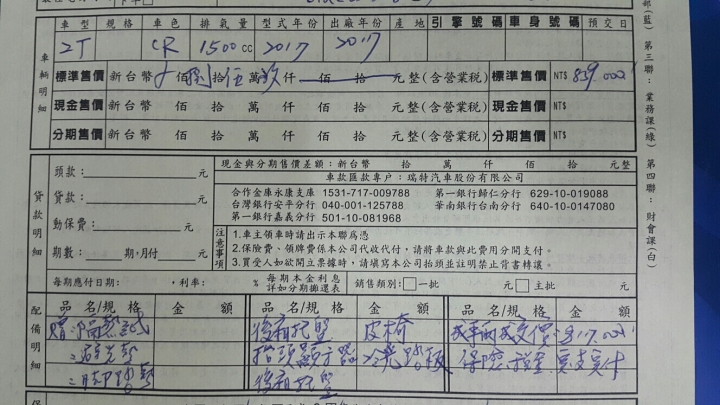 部(藍) 第三聯：業務課(綠) 第四聯：財會課(白)
車型 規格 車色 排氣量 型式年份 出廠年份 產地 引擎號碼 車身號碼 預交日
CR 1500cc 2017 2017
車輛明細
標準售價 新台幣 佰 拾 萬 仟 佰 拾 元整(含營業稅) 標準售價 NT$
現金售價 新台幣 佰 拾 萬 仟 佰 拾 元整(含營業稅) 現金售價 NT$
分期售價 新台幣 佰 拾 萬 仟 佰 拾 元整(含營業稅) 分期售價 NT$
貸款明細
頭款： 元
貸款： 元
動保費： 元
期數： 期，月付 元
現金與分期售價差額：新台幣 拾 萬 仟 佰 拾 元整
車款匯款專户：瑞特汽車股份有限公司
合作金庫永康支庫 1531-717-009788 第一銀行歸仁分行 629-10-019088
台灣銀行安平分行 040-001-125788 華南銀行台南分行 640-10-0147080
第一銀行嘉義分行 501-10-081968
注意事項
1.車主領車時請出示本聯為憑
2.保險費、領牌費係本公司代收代付，請將車款與此費用分開支付。
3.買受人如欲開立票據時，請填寫本公司抬頭並註明禁止背書轉讓。
每期應付日期： ，利率： % 每期本金利息詳如分期攤還表 銷售類別：□一批 元 □主批 元
配備明細
品名/規格 金額 品名/規格 金額 品名/規格 金額
贈 後廂托盤 皮椅 成交價
抬頭顯示器 冷光踏板 保險 實支實付
後廂托盤